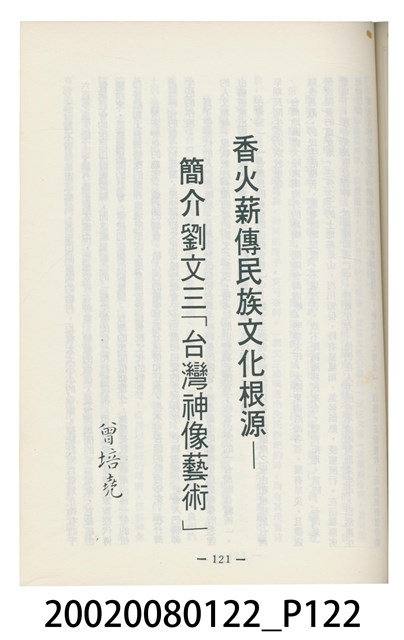 香火薪傳民族文化根源—
簡介劉文三「台灣神像藝術」
曾培堯
— 121 —
20020080122_P122